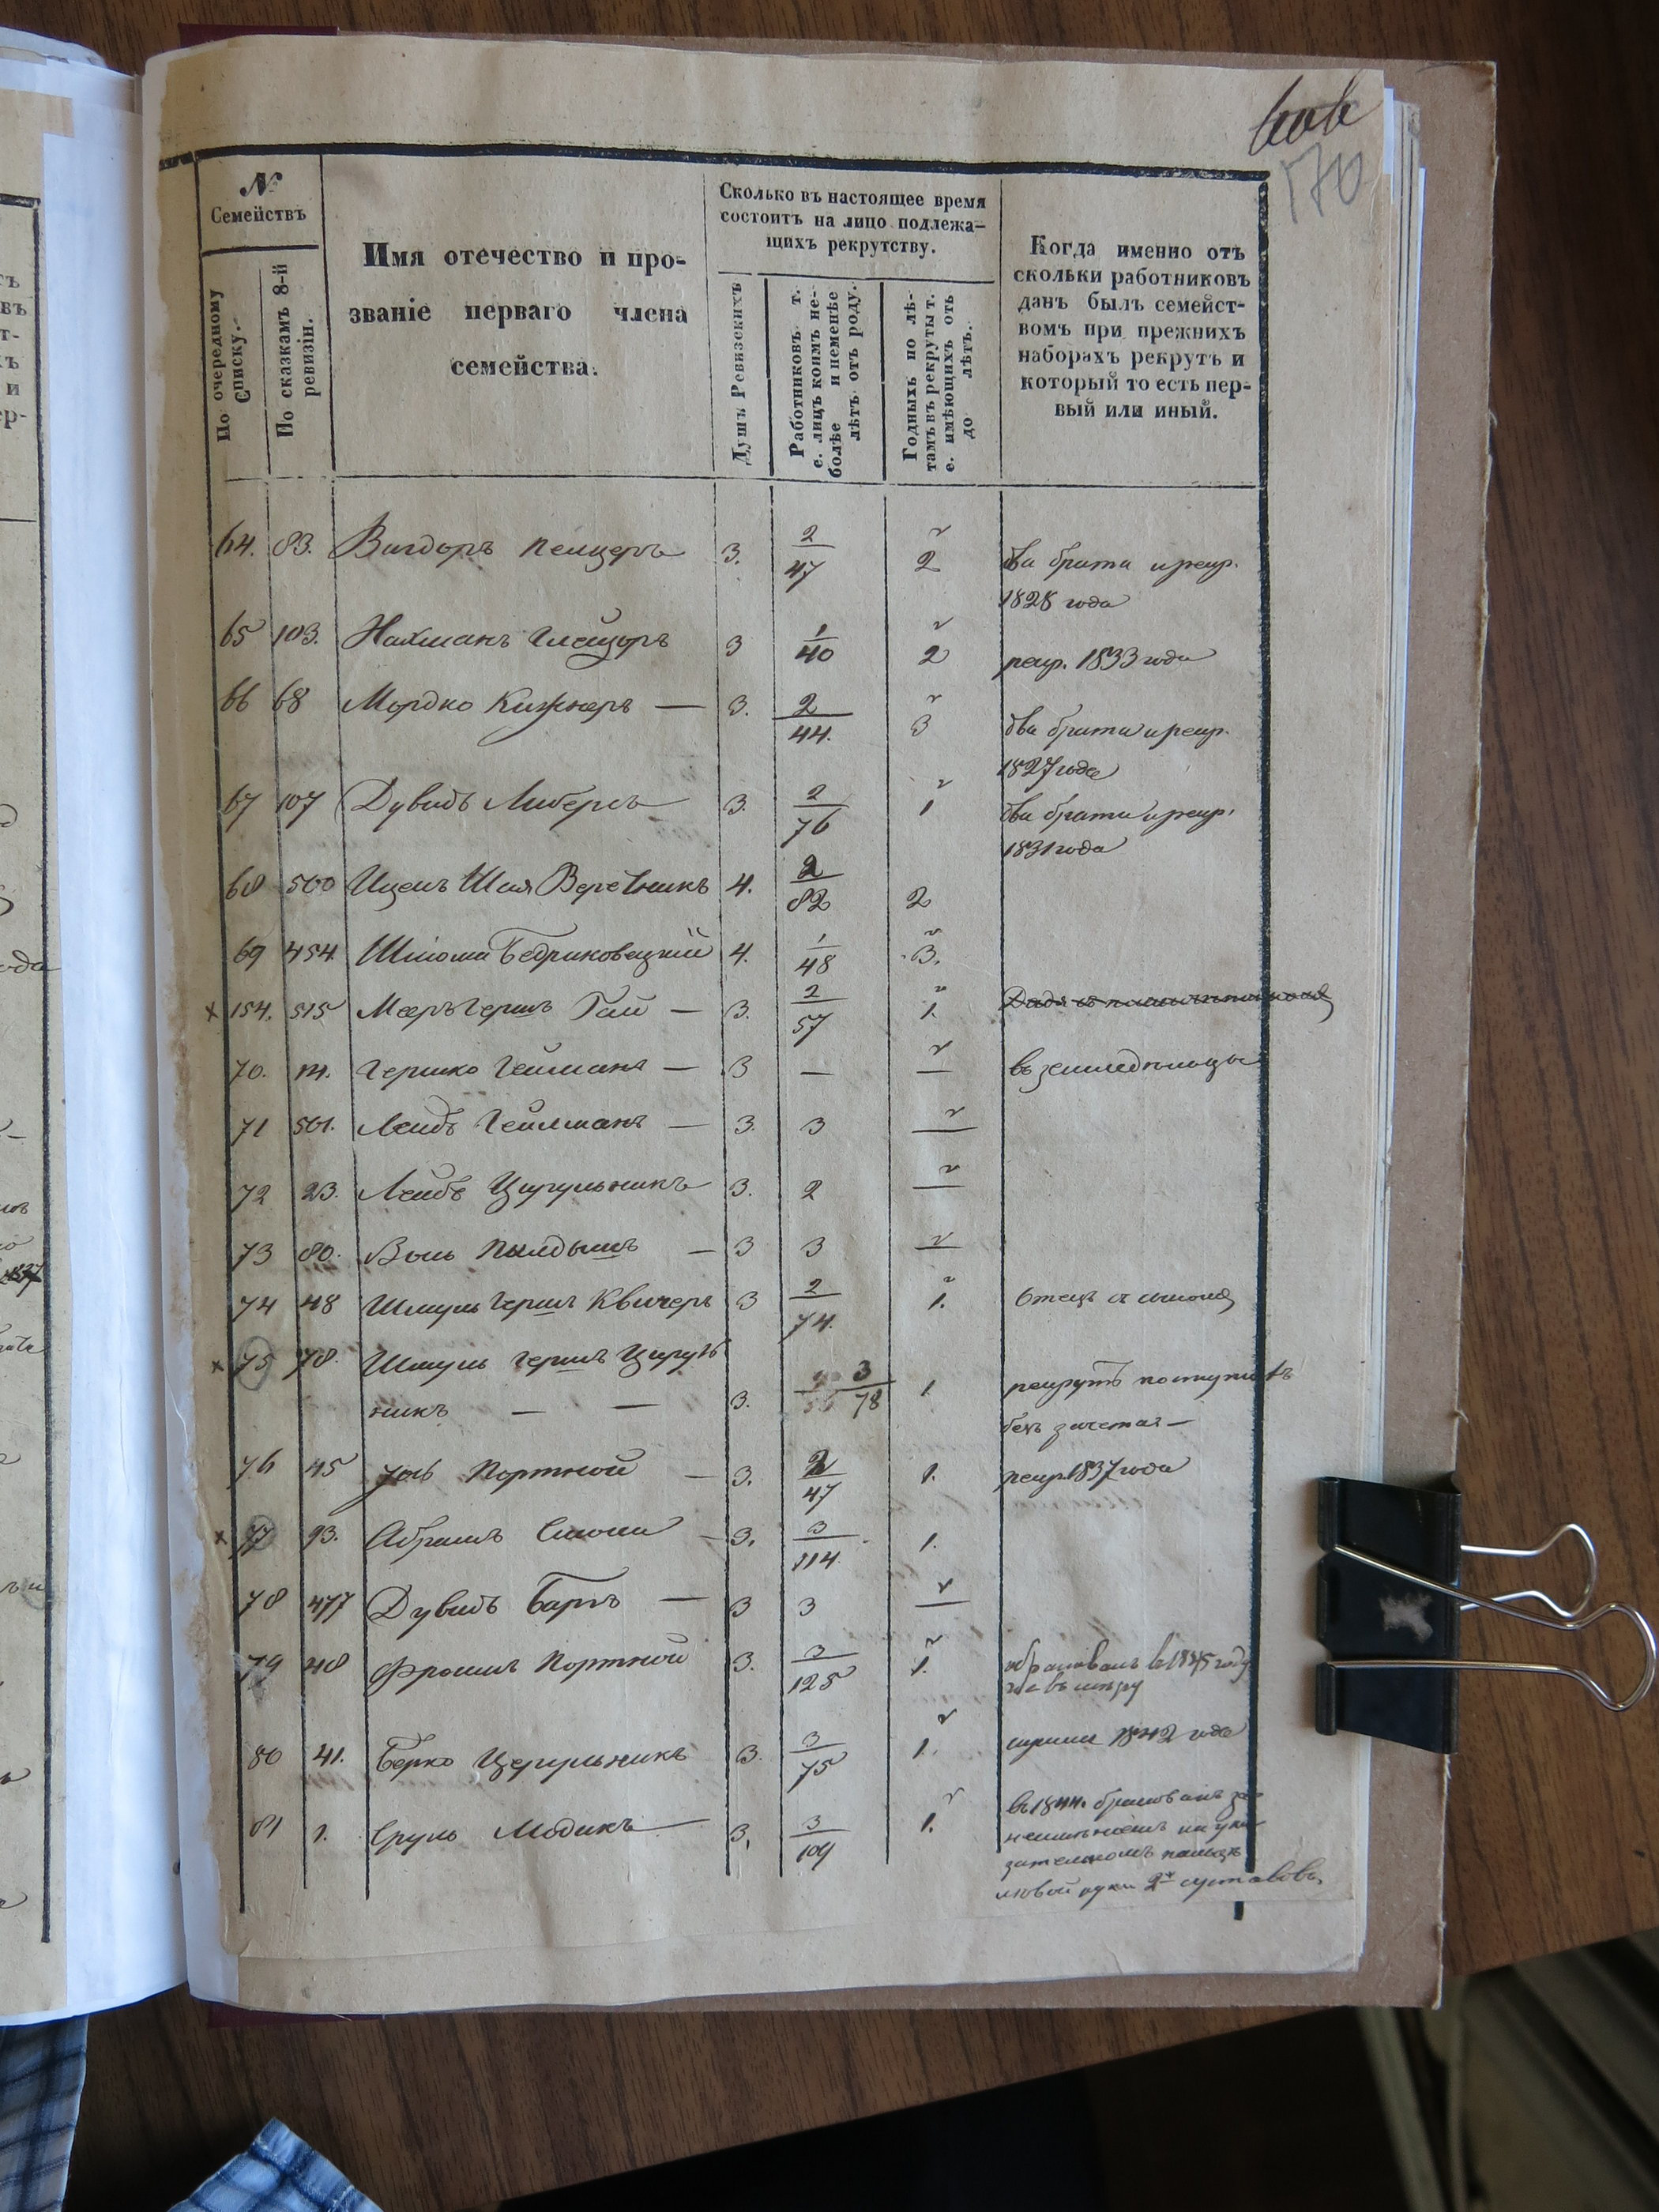 170
№
Семействъ
По очередному Списку.
По сказкамъ 8-й ревизіи.
Имя отечество и про-
званіе перваго члена
семейства.
Сколько въ настоящее время
состоитъ на лицо подлежа-
щихъ рекрутству.
Душъ Ревизскихъ
Работниковъ т.
е. лицъ коимъ не-
болѣе и неменѣе
лѣтъ отъ роду.
Годныхъ по лѣ-
тамъ въ рекруты т.
е. имѣющихъ отъ
до лѣтъ.
Когда именно отъ
скольки работниковъ
данъ былъ семейст-
вомъ при прежнихъ
наборахъ рекрутъ и
который то есть пер-
вый или иный.
64. 83. Вигдоръ 3. 2/47 2 два брата и рекр.
1828 года
65 103. Нахманъ Глейзоръ 3 1/40 2 рекр. 1833 года
66 68 Мордко Кижнеръ — 3. 2/44. 3 два брата и рекр.
1827 года
67 107 Дувидъ 3. 2/76 1 два брата и рекр.
1831 года
68 500 Ицекъ Шая Веревникъ 4. 2/82 2
69 454. Шлиома Бедриковецкий 4. 1/48 3.
× 154. 515 Мееръ Гершъ Гай — 3. 2/57 1.
70. т. Гершко Гейманъ — 3 — — въ земледельцы
71 501. Лейбъ Гейлманъ — 3. 3 —
72 23. Лейбъ Цирульникъ 3. 2 —
73 80. — 3 3 —
74 48 Шмуль Гершъ Квичеръ 3 2/74. 1. Отецъ съ сыномъ
× 75 78. Шмуль Гершъ Цируль
никъ — — 3. 3/78 1. рекрутъ поступилъ
безъ зачета —
76 45 Портной — 3. 2/47 1. рекр. 1837 года
× 77 93. Абрамъ — 3. 3/114. 1.
78 477 Дувидъ Баръ — 3 3 —
79 48 Фроимъ Портной 3. 3/125 1. въ 1845 году
80 41. Берко Церульникъ 3. 3/75 1. 1842 года
81 1. Сруль Модикъ — 3. 3/109 1. въ 1844. бракованъ за
неимѣніемъ на ука-
зательномъ пальцѣ
лѣвой руки 2х суставовъ.